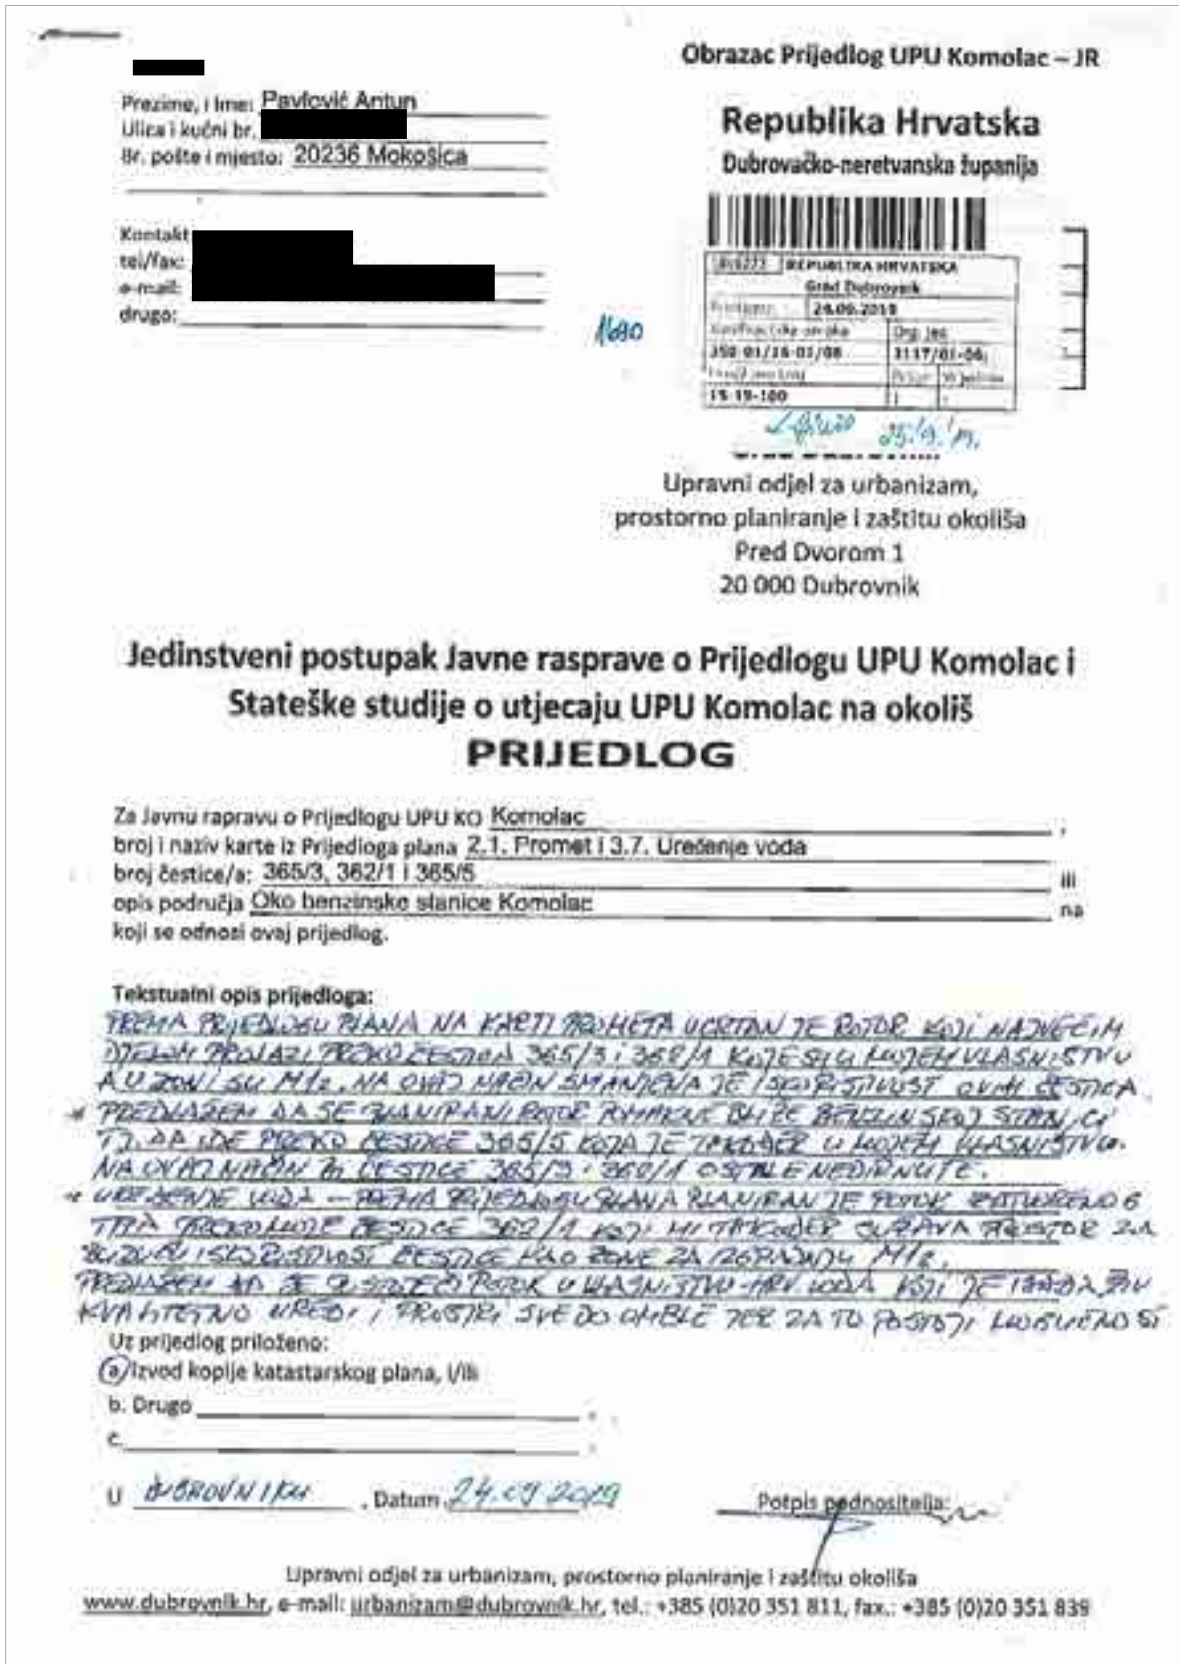 Obrazac Prijedlog UPU Komolac – JR
Prezime, i Ime: Pavlović Antun
Ulica i kućni br.
Br. pošte i mjesto: 20236 Mokošica
Kontakt
tel/fax:
e-mail:
drugo:
Republika Hrvatska
Dubrovačko-neretvanska županija
REPUBLIKA HRVATSKA
Grad Dubrovnik
24.09.2019
Org. jed.
350-01/16-01/08
3117/01-06
15-19-100
1690
25.9.19.
Upravni odjel za urbanizam,
prostorno planiranje i zaštitu okoliša
Pred Dvorom 1
20 000 Dubrovnik
Jedinstveni postupak Javne rasprave o Prijedlogu UPU Komolac i
Stateške studije o utjecaju UPU Komolac na okoliš
PRIJEDLOG
Za Javnu rapravu o Prijedlogu UPU KO Komolac ,
broj i naziv karte iz Prijedloga plana 2.1. Promet i 3.7. Uređenje voda
broj čestice/a: 365/3, 362/1 i 365/5 ili
opis područja Oko benzinske stanice Komolac na
koji se odnosi ovaj prijedlog.
Tekstualni opis prijedloga:
PREMA PRIJEDLOGU PLANA NA KARTI PROMETA UCRTAN JE ROTOR KOJI NAJVEĆIM
DJELOM PROLAZI PREKO ČESTICA 365/3 i 362/1 KOJE SU U MOJEM VLASNIŠTVU
A U ZONI SU M12. NA OVAJ NAČIN SMANJENA JE ISKORISTIVOST OVIH ČESTICA
* PREDLAŽEM DA SE PLANIRANI ROTOR POMAKNE BLIŽE BENZINSKOJ STANICI
TJ. DA IDE PREKO ČESTICE 365/5 KOJA JE TAKOĐER U MOJEM VLASNIŠTVU.
NA OVAJ NAČIN BI ČESTICE 365/3 i 362/1 OSTALE NEDIRNUTE.
* UREĐENJE VODA – PREMA PRIJEDLOGU PLANA PLANIRAN JE POTOK ZATVORENOG
TIPA PREKO MOJE ČESTICE 362/1 KOJI MI TAKOĐER PROSTOR ZA
ISKORISTIVOST ČESTICE KAO ZONE ZA IZGRADNJU M12.
PREDLAŽEM DA SE POSTOJEĆI POTOK U VLASNIŠTVU HRV. VODA KOJI JE
KVALITETNO UREDI I PROŠIRI SVE DO OMBLE JER ZA TO POSTOJI MOGUĆNOST
Uz prijedlog priloženo:
a. Izvod kopije katastarskog plana, i/ili
b. Drugo .
c. .
U DUBROVNIKU , Datum 24.09 2019
Potpis podnositelja:
Upravni odjel za urbanizam, prostorno planiranje i zaštitu okoliša
www.dubrovnik.hr, e-mail: urbanizam@dubrovnik.hr, tel.: +385 (0)20 351 811, fax.: +385 (0)20 351 839